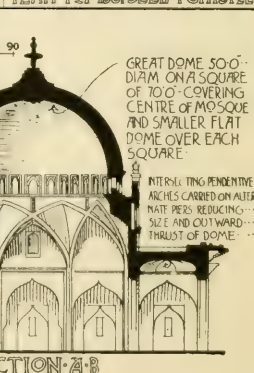 90
GREAT DOME 50·0"
DIAM ON A SQUARE
OF 70'0"·COVERING
CENTRE OF MOSQUE
AND SMALLER FLAT
DOME OVER EACH
SQUARE·
INTERSECTING PENDENTIVE
ARCHES CARRIED ON ALTER
NATE PIERS REDUCING
SIZE AND OUTWARD
THRUST OF DOME
CTION·A·B